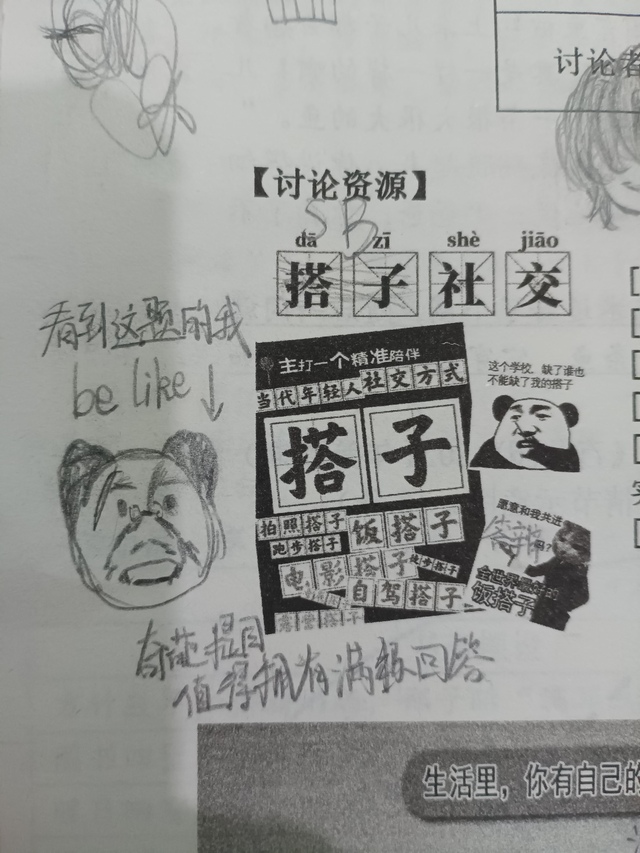 讨论者
【讨论资源】
SB
dā zī shè jiāo
搭子社交
看到这题的我
be like
主打一个精准陪伴
当代年轻人社交方式
搭子
拍照搭子
饭搭子
跑步搭子
电影搭子
自驾搭子
露营搭子
这个学校,缺了谁也
不能缺了我的搭子
愿意和我共进
吗?
全世界最好的
饭搭子
奇葩提目
值得拥有满级回答
生活里,你有自己的